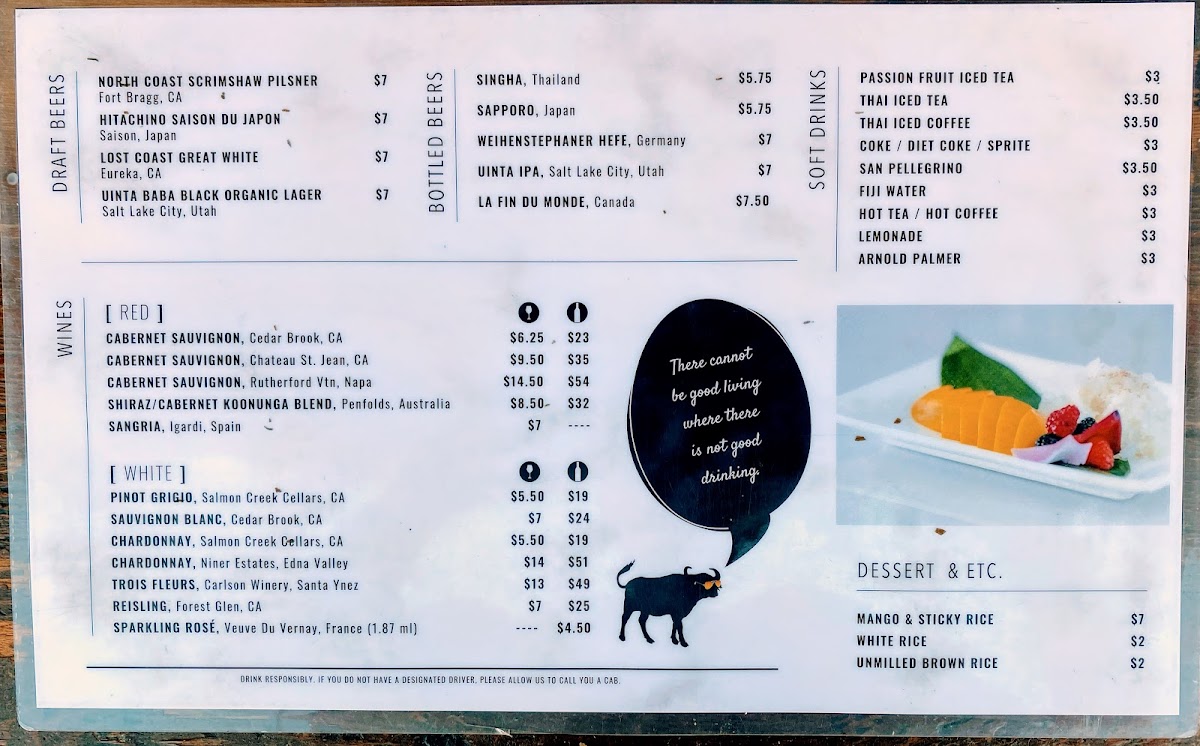 DRAFT BEERS
NORTH COAST SCRIMSHAW PILSNER $7
Fort Bragg, CA
HITACHINO SAISON DU JAPON $7
Saison, Japan
LOST COAST GREAT WHITE $7
Eureka, CA
UINTA BABA BLACK ORGANIC LAGER $7
Salt Lake City, Utah
BOTTLED BEERS
SINGHA, Thailand $5.75
SAPPORO, Japan $5.75
WEIHENSTEPHANER HEFE, Germany $7
UINTA IPA, Salt Lake City, Utah $7
LA FIN DU MONDE, Canada $7.50
SOFT DRINKS
PASSION FRUIT ICED TEA $3
THAI ICED TEA $3.50
THAI ICED COFFEE $3.50
COKE / DIET COKE / SPRITE $3
SAN PELLEGRINO $3.50
FIJI WATER $3
HOT TEA / HOT COFFEE $3
LEMONADE $3
ARNOLD PALMER $3
WINES
[ RED ]
CABERNET SAUVIGNON, Cedar Brook, CA $6.25 $23
CABERNET SAUVIGNON, Chateau St. Jean, CA $9.50 $35
CABERNET SAUVIGNON, Rutherford Vtn, Napa $14.50 $54
SHIRAZ/CABERNET KOONUNGA BLEND, Penfolds, Australia $8.50 $32
SANGRIA, Igardi, Spain $7 ----
[ WHITE ]
PINOT GRIGIO, Salmon Creek Cellars, CA $5.50 $19
SAUVIGNON BLANC, Cedar Brook, CA $7 $24
CHARDONNAY, Salmon Creek Cellars, CA $5.50 $19
CHARDONNAY, Niner Estates, Edna Valley $14 $51
TROIS FLEURS, Carlson Winery, Santa Ynez $13 $49
REISLING, Forest Glen, CA $7 $25
SPARKLING ROSÉ, Veuve Du Vernay, France (1.87 ml) ---- $4.50
There cannot
be good living
where there
is not good
drinking.
DESSERT & ETC.
MANGO & STICKY RICE $7
WHITE RICE $2
UNMILLED BROWN RICE $2
DRINK RESPONSIBLY. IF YOU DO NOT HAVE A DESIGNATED DRIVER, PLEASE ALLOW US TO CALL YOU A CAB.